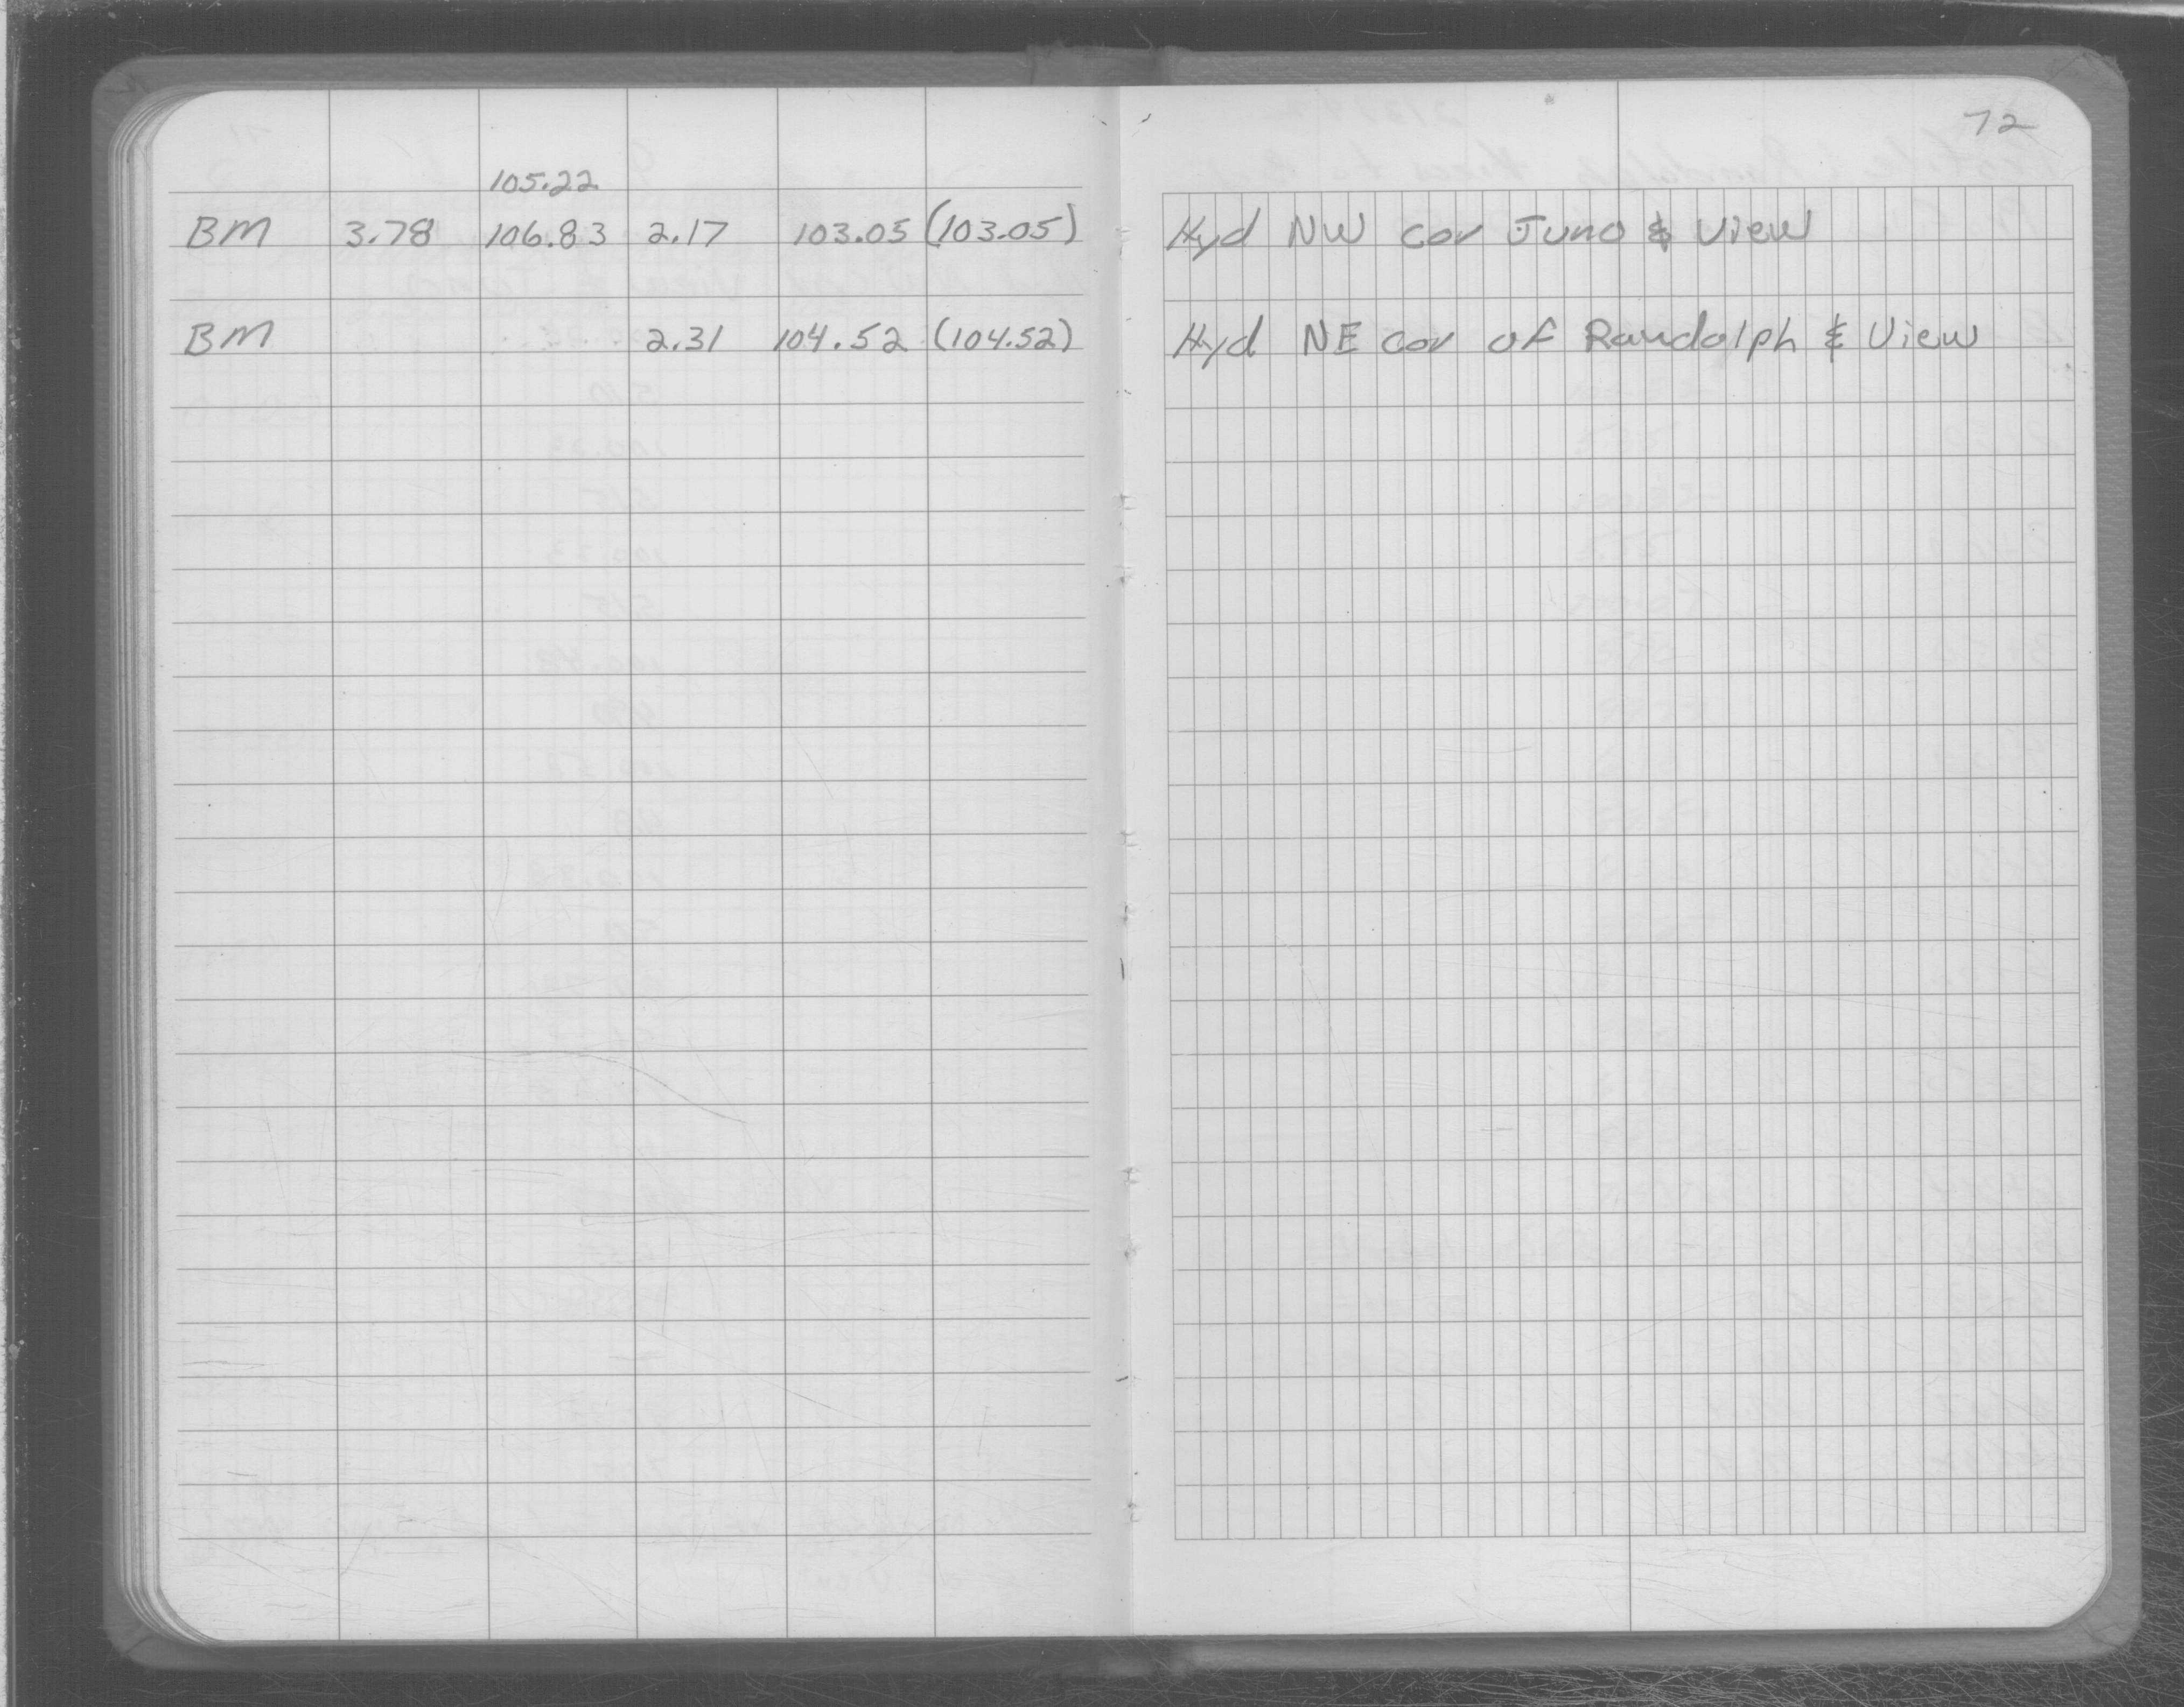 72
105.22
BM 3.78 106.83 2.17 103.05 (103.05) Hyd NW cor Juno & View
BM 2.31 104.52 (104.52) Hyd NE cor of Randolph & View